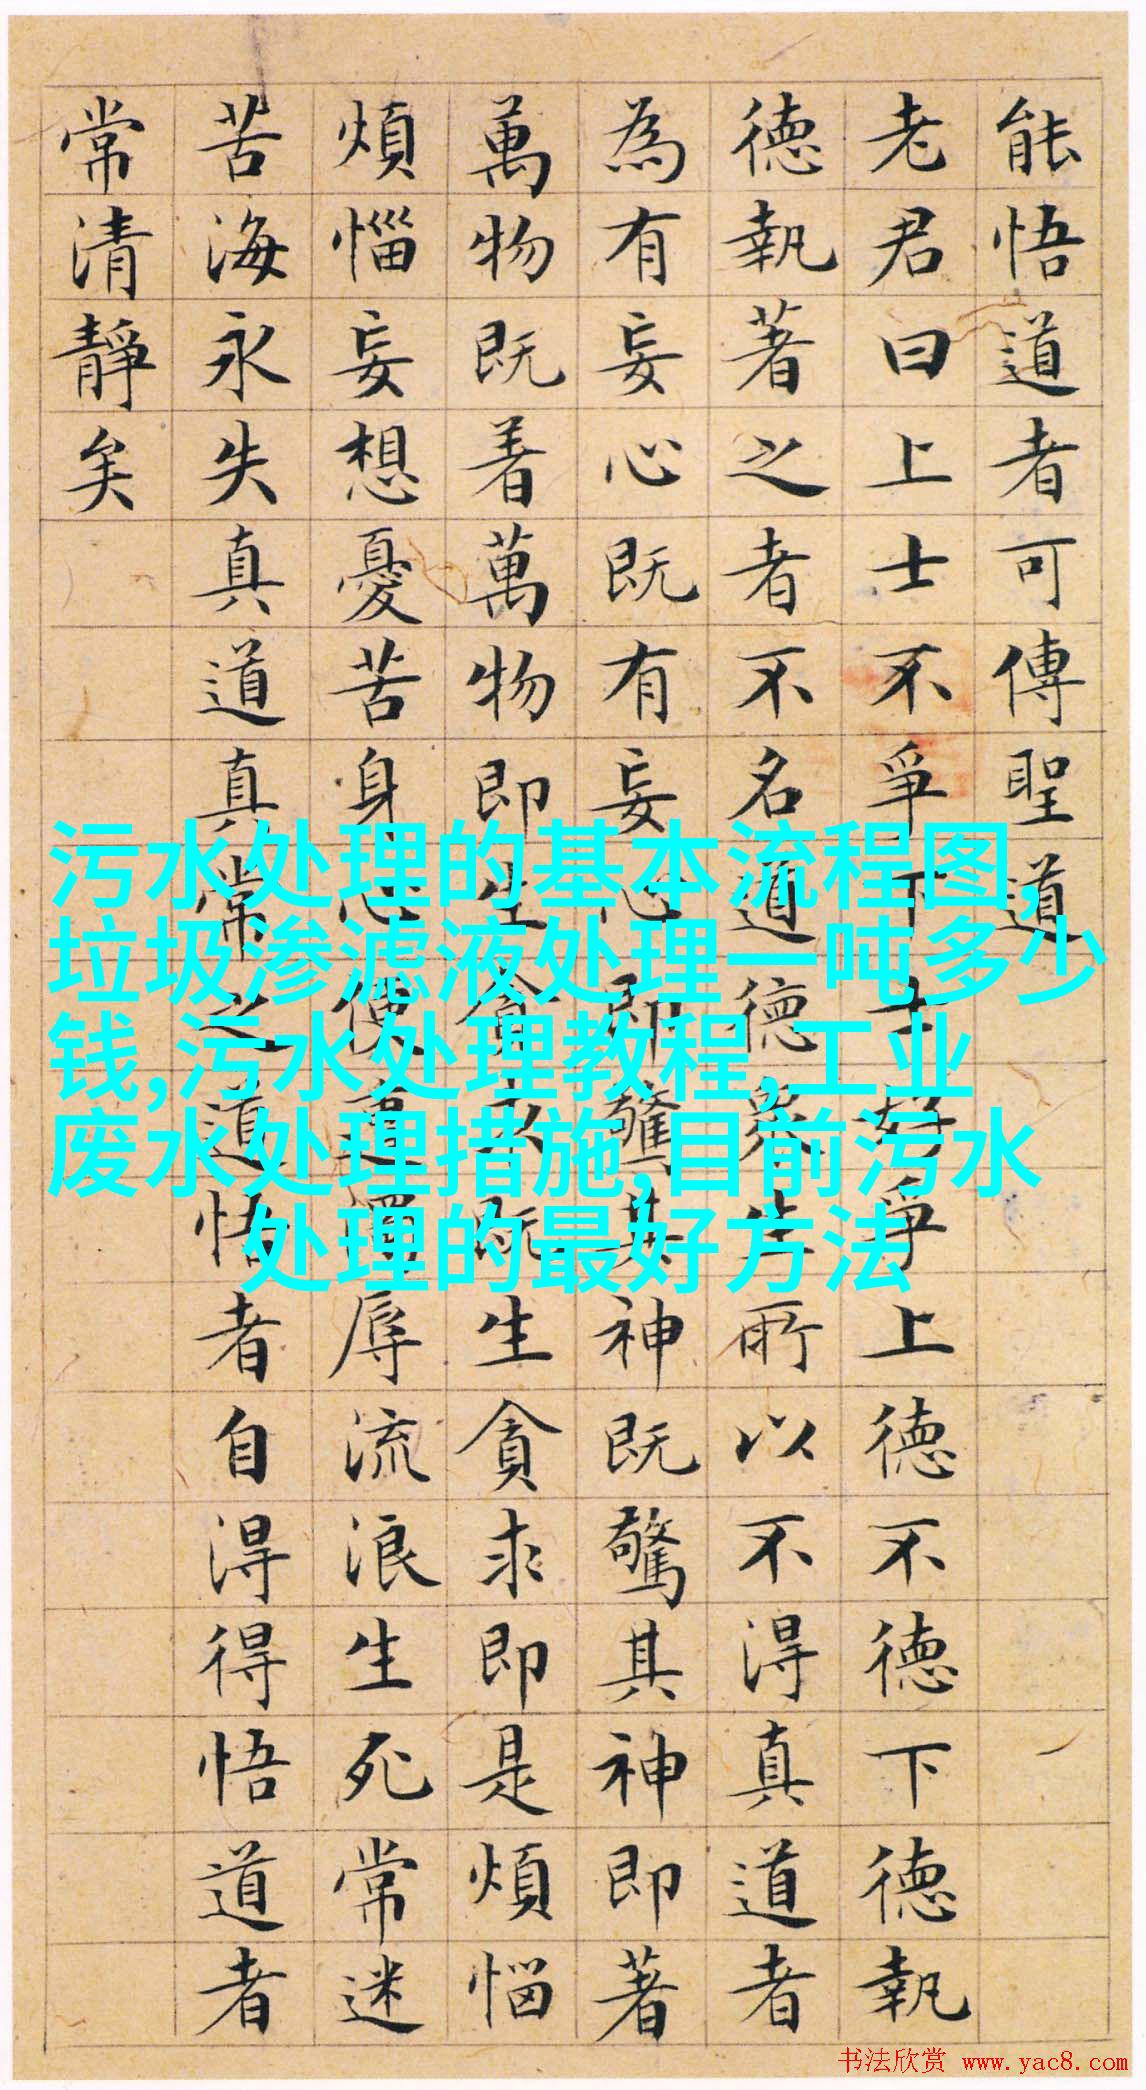 能悟道者可傳聖道
老君曰上士不爭下士好爭上德不德下德執
德執著之者不名道德眾生所以不得真道者
為有妄心既有妄心即驚其神既驚其神即著
萬物既着萬物即生貪求既生貪求即是煩惱
煩惱妄想憂苦身心便遭濁辱流浪生死常迷
苦海永失真道真常之道悟者自得得悟道者
常清靜矣
污水处理的基本流程图,
垃圾渗滤液处理一吨多少
钱,污水处理教程,工业
废水处理措施,目前污水
处理的最好方法
书法欣赏 www.yac8.com